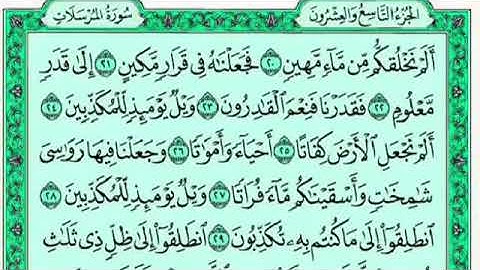 سُورَةُ المُرْسَلَاتِ الجُزْءُ التَّاسِعُ وَالعِشْرُونَ
أَلَمْ نَخْلُقكُّم مِّن مَّآءٍ مَّهِينٍ ٢٠ فَجَعَلْنَٰهُ فِى قَرَارٍ مَّكِينٍ ٢١ إِلَىٰ قَدَرٍ
مَّعْلُومٍ ٢٢ فَقَدَرْنَا فَنِعْمَ ٱلْقَٰدِرُونَ ٢٣ وَيْلٌ يَوْمَئِذٍ لِّلْمُكَذِّبِينَ ٢٤
أَلَمْ نَجْعَلِ ٱلْأَرْضَ كِفَاتًا ٢٥ أَحْيَآءً وَأَمْوَٰتًا ٢٦ وَجَعَلْنَا فِيهَا رَوَٰسِىَ
شَٰمِخَٰتٍ وَأَسْقَيْنَٰكُم مَّآءً فُرَاتًا ٢٧ وَيْلٌ يَوْمَئِذٍ لِّلْمُكَذِّبِينَ ٢٨
ٱنطَلِقُوٓا۟ إِلَىٰ مَا كُنتُم بِهِۦ تُكَذِّبُونَ ٢٩ ٱنطَلِقُوٓا۟ إِلَىٰ ظِلٍّ ذِى ثَلَٰثِ